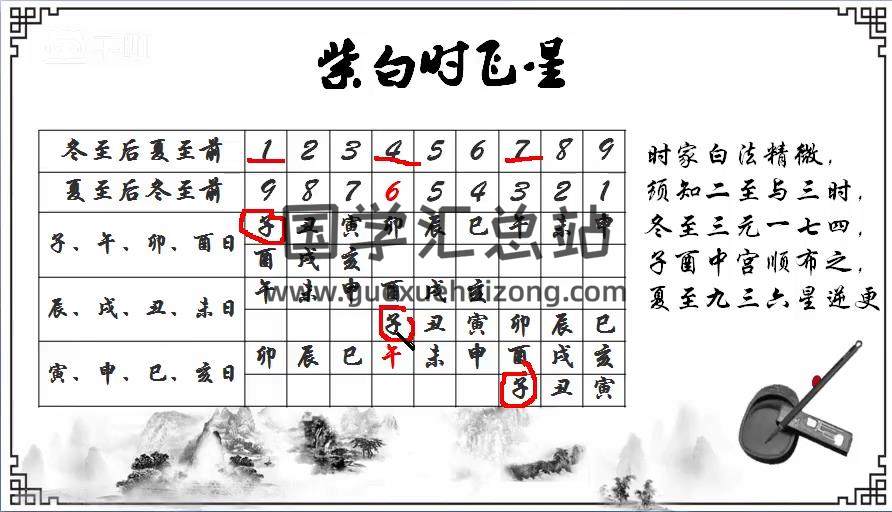 紫白时飞星
冬至后夏至前 1 2 3 4 5 6 7 8 9
夏至后冬至前 9 8 7 6 5 4 3 2 1
子、午、卯、酉日 子 丑 寅 卯 辰 巳 午 未 申
酉 戌 亥
辰、戌、丑、未日 午 未 申 酉 戌 亥
子 丑 寅 卯 辰 巳
寅、申、巳、亥日 卯 辰 巳 午 未 申 酉 戌 亥
子 丑 寅
时家白法精微，
须知二至与三时，
冬至三元一七四，
子酉中宫顺布之，
夏至九三六星逆更
国学汇总站
www.guoxuehuizong.com